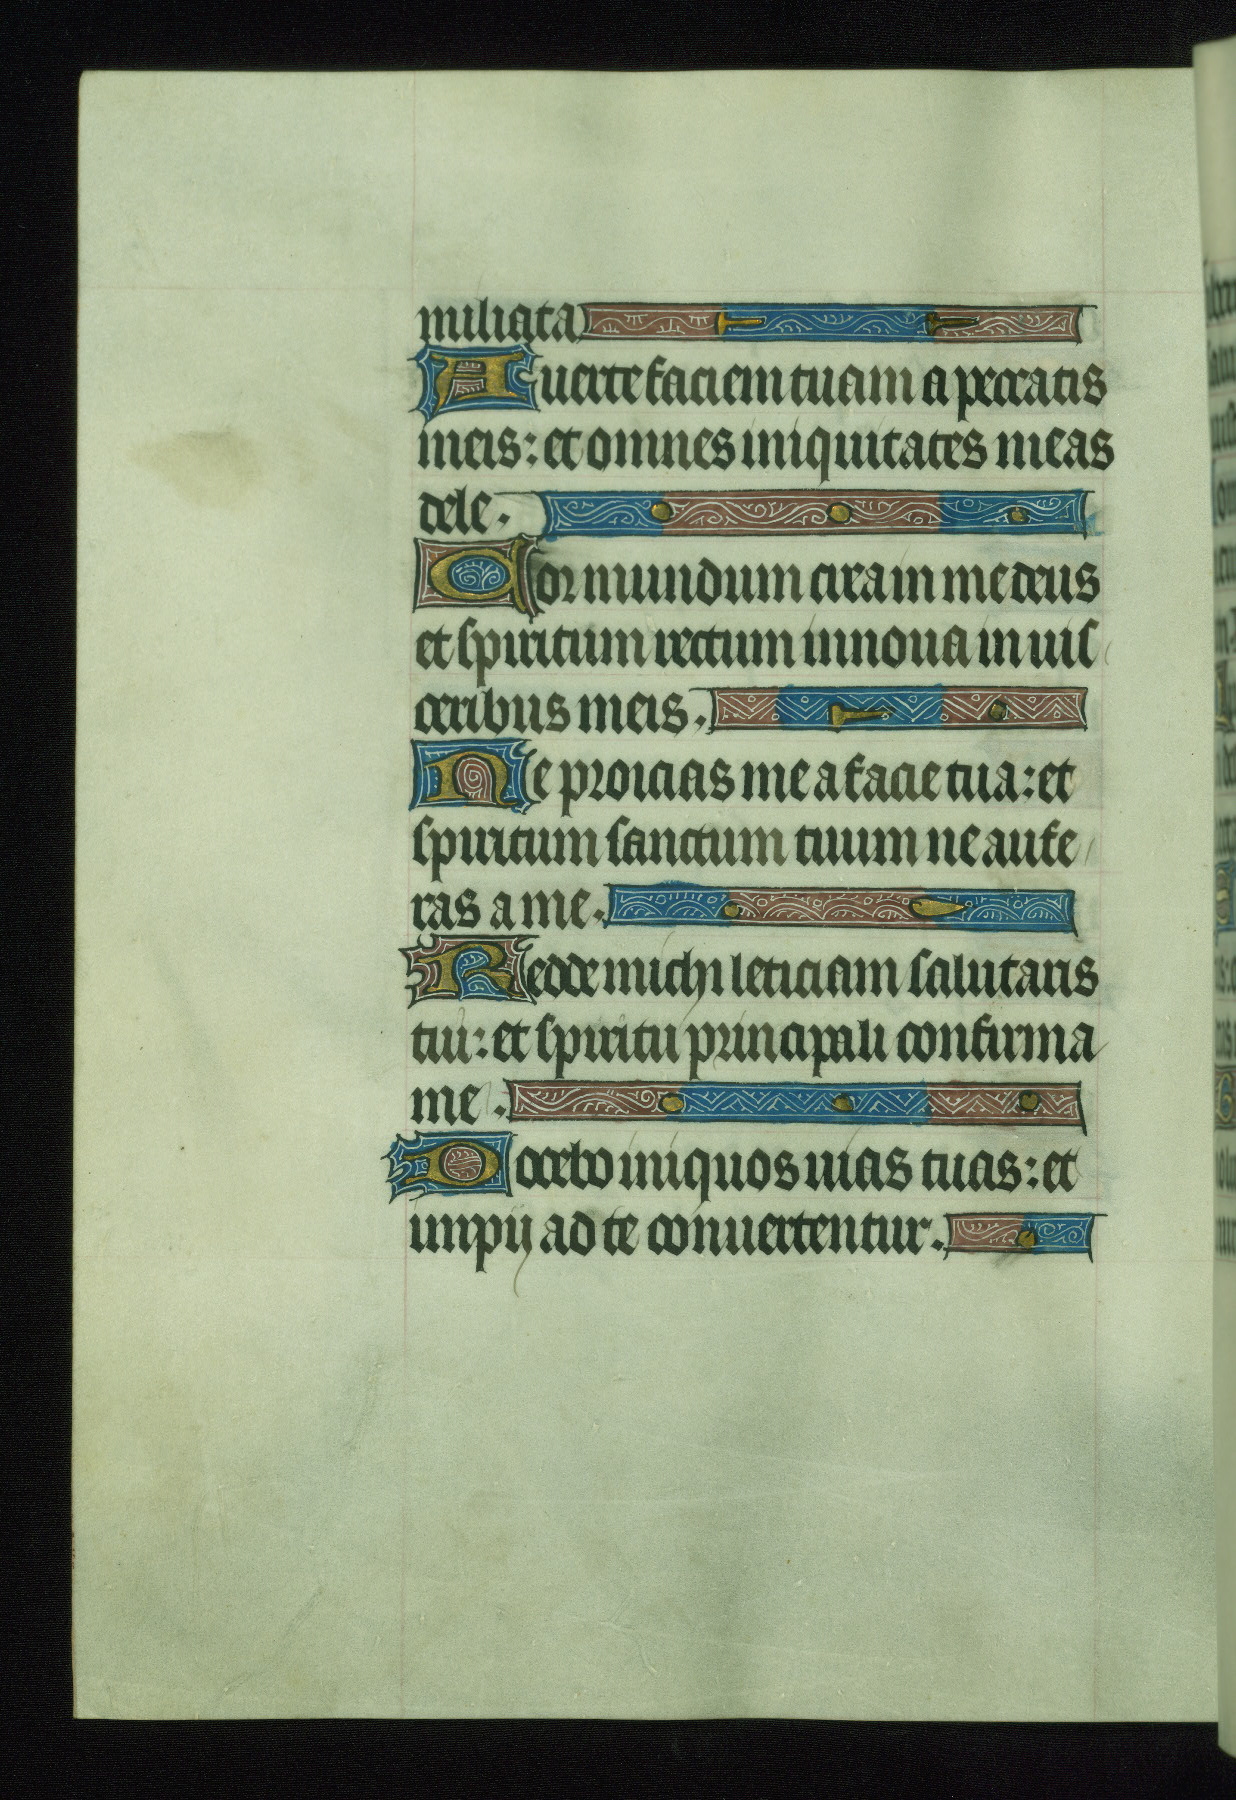 miliata
Auerte faciem tuam a peccatis
meis: et omnes iniquitates meas
dele.
Cor mundum crea in me deus
et spiritum rectum innoua in uis
ceribus meis.
Ne proicias me a facie tua: et
spiritum sanctum tuum ne aufe
ras a me.
Redde michi leticiam salutaris
tui: et spiritu principali confirma
me.
Docebo iniquos uias tuas: et
impij ad te conuertentur.